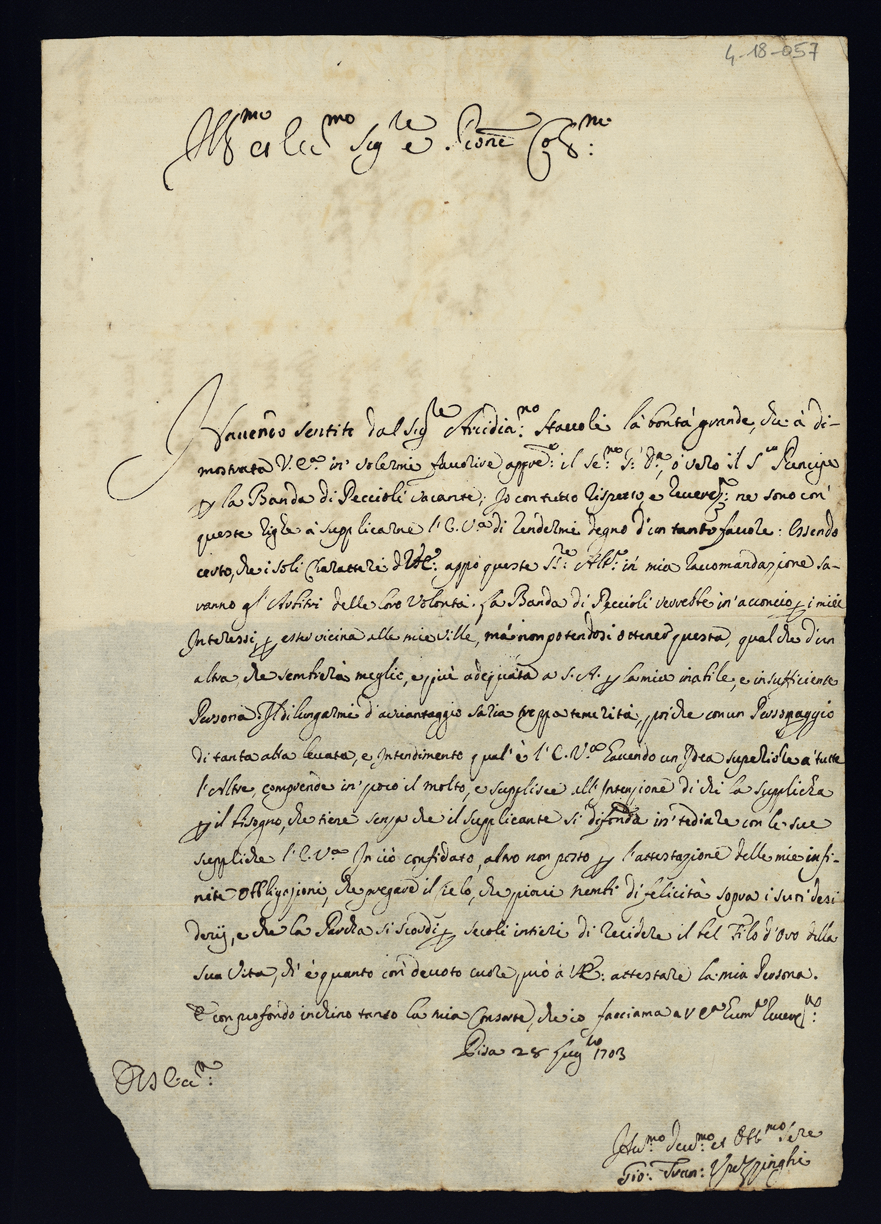 4-18-057
Ill.mo et Ecc.mo Sig.re e Pione Col.mo:
Havendo sentite dal Sig.re Arcidia:no Staccoli la bontà grande, che à di-
mostrata V. E.a in' volermi favorire appre: il Se:mo G: D:a, o' vero il S. Principe
p la Banda di Peccioli vacante; Io con tutto rispetto, e reverez:a ne sono con'
queste righe à supplicarne l'E. V.a di rendermi degno d'un tanto favore: Essendo
certo, che i soli Charatteri appò queste S:me Alt:e in' mia raccomandazione sa-
ranno gl' Arbitri delle loro Volontà. La Banda di Peccioli verrebbe in' acconcio p i miei
Interessi, p esser vicina alle mie Ville, mà non potendosi ottener questa, qual che d'un
altra, che sembrerà meglio, e più adequata a S. A. p la mia inabile, e insufficiente
Persona. Il dilungarmi d'avvantaggio saria troppa temerità, poi che con un Personaggio
di tanta alta levata, e Intendimento qual' è l' E. V.a havendo un Idea superiore a' tutte
l'Altre, comprende in' poco il molto, e supplisce all' Intenzione di chi la supplicha
p il bisogno, che tiene senza che il supplicante si difonda in' tediare con le sue
suppliche l' E. V.a In ciò confidato, altro non posso p l' attestazione delle mie infi-
nite obbligazioni, che pregare il cielo, che piovi nembi di felicità sopra i suoi desi
derij, e che la Parcha si scordi p secoli intieri di recidere il bel Filo d'Oro della
sua Vita, ch' è quanto con' devoto cuore può à V.E: attestare la mia Persona.
E con profondo inchino tanto la mia Consorte, che io facciama a V E.a Rever:
Pisa 28 Lug.lio 1703
Gio: Fran: Upezzinghi